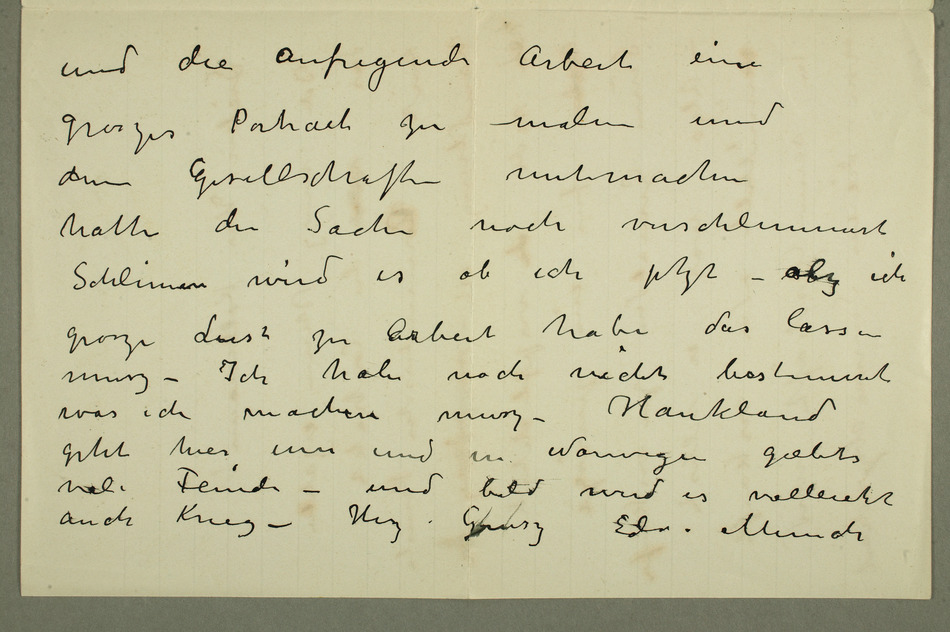 und die aufregende Arbeit eine
groszes Portrait zu malen und
den Gesellschaften mitmachen
hatte die Sache noch verschlimmert
Schlimm wird es ob ich jetzt – ich
grosze Lust zu Arbeit habe das lassen
musz – Ich habe noch nicht bestimmt
was ich machen musz – Haukland
geht hier um und in Norwegen giebts
viele Feinde – und bald wird es vielleicht
auch Krieg – Herz. Grusz Edv. Munch